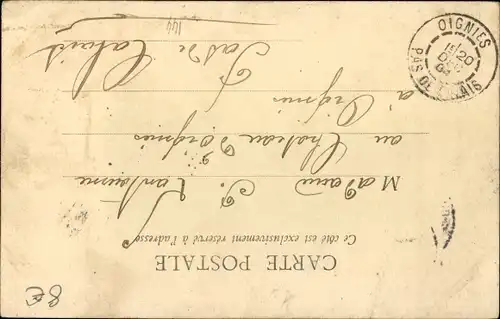 CARTE POSTALE
Ce côté est exclusivement réservé à l'adresse
Madame
au Chateau d'Oignies
à Oignies
Pas de Calais
144
OIGNIES
20
DEC
04
PAS DE CALAIS
8€